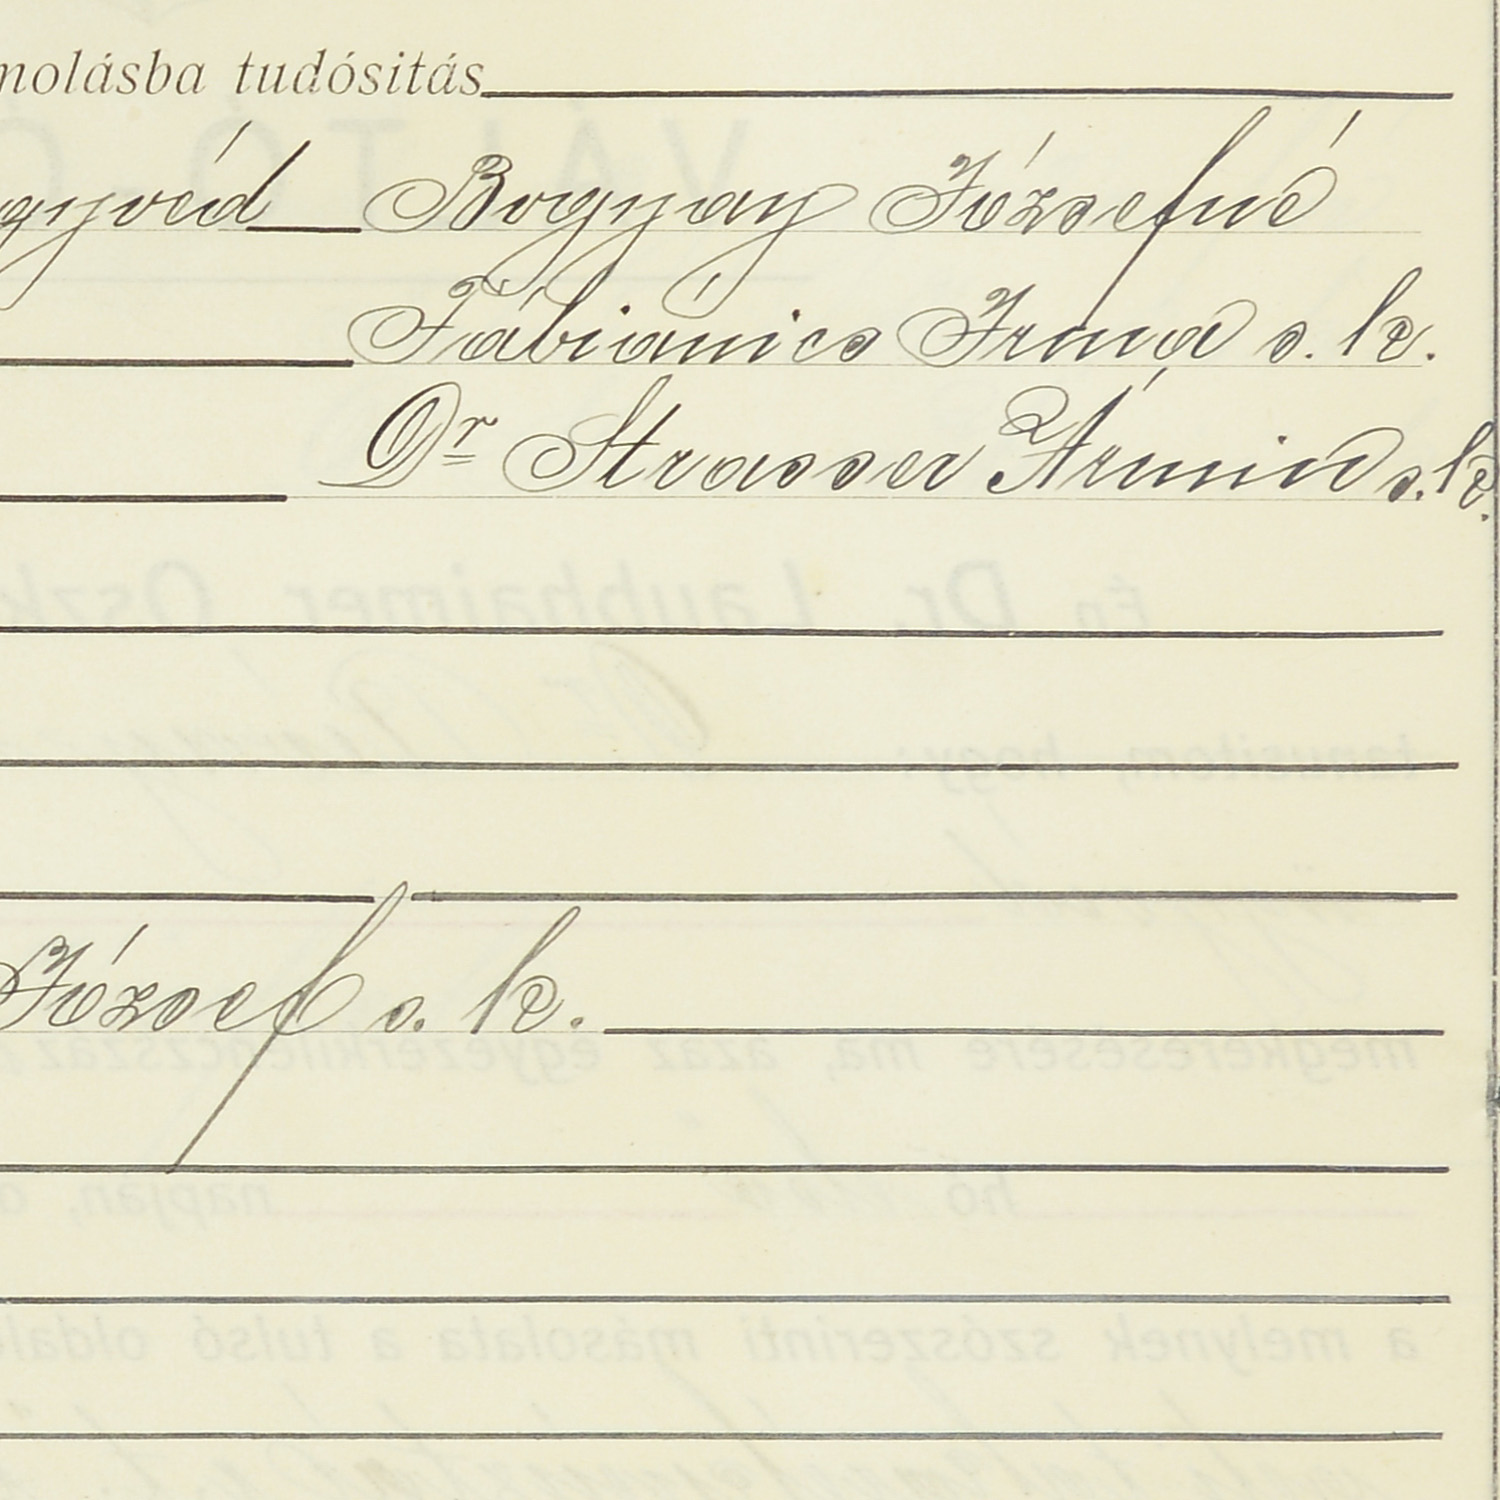 molásba tudósitás
gyvéd Bogyay Józsefné
Fábiánics Irma s. k.
Dr Strasser Ármin s. k.
József s. k.